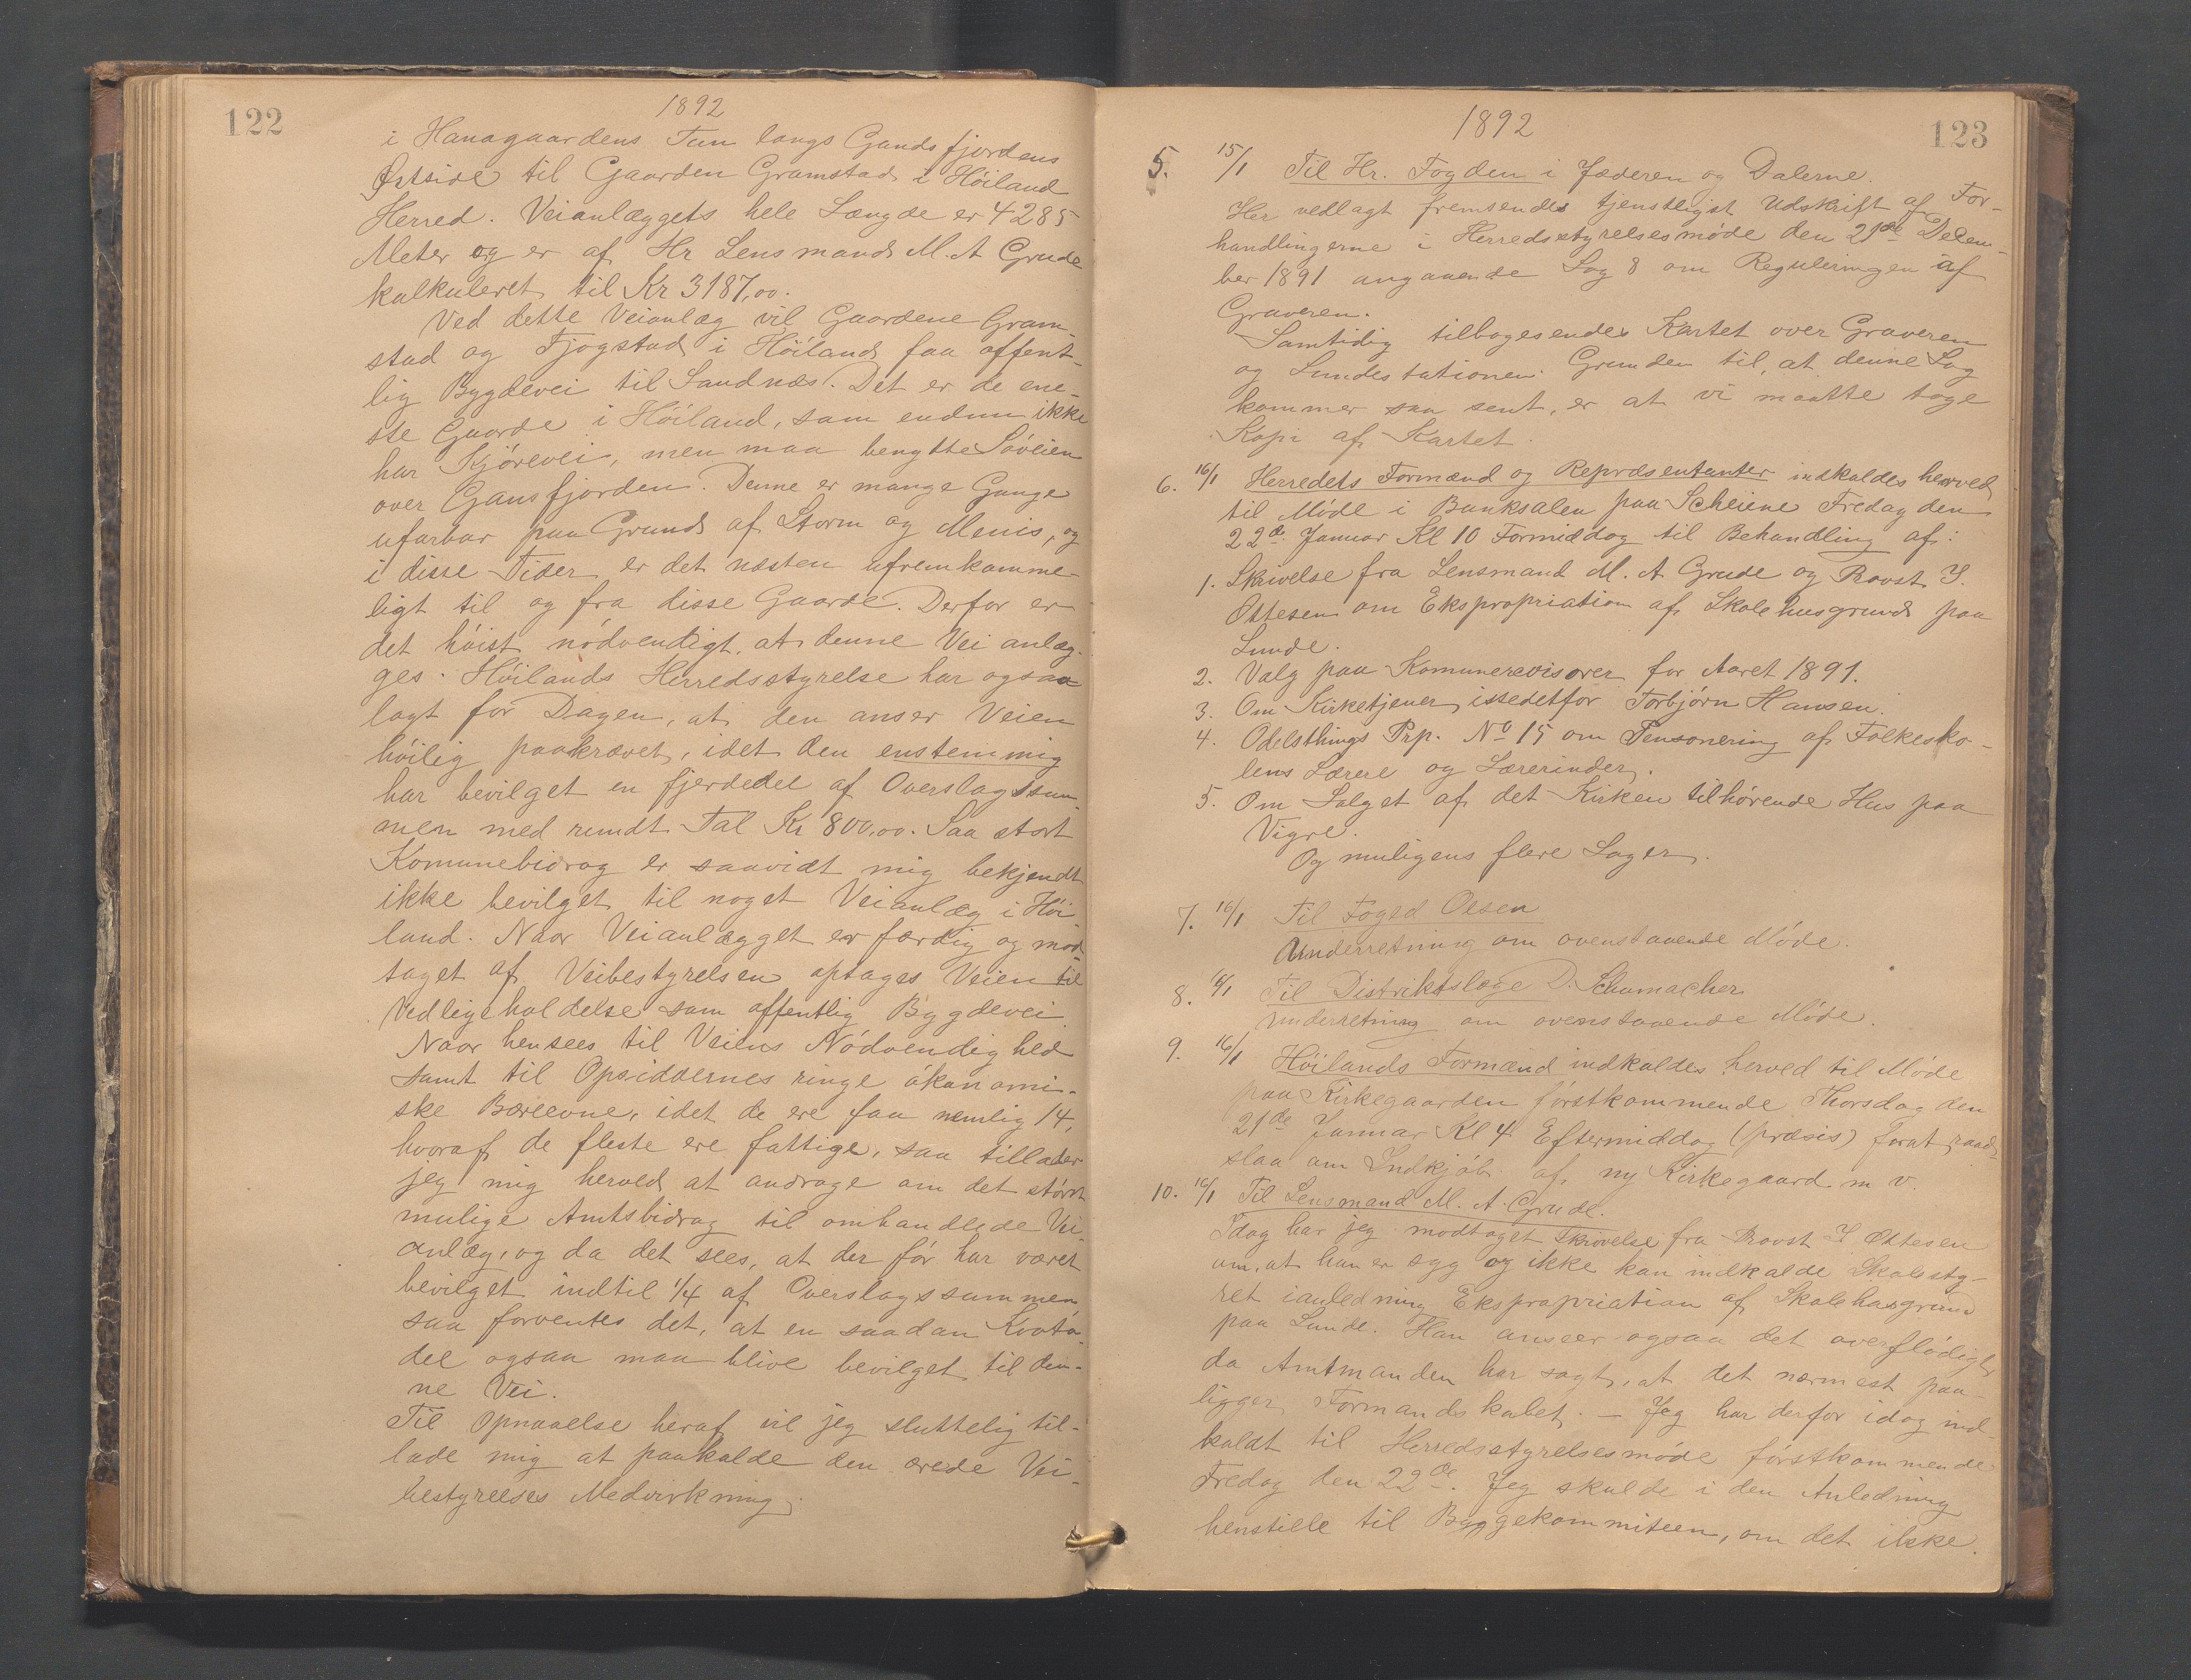 122
1892
i Hanagaardens Tun langs Gandsfjordens
Østside til Gaarden Gramstad i Höiland
Herred. Veianlæggets hele Længde er 4285
Meter og er af Hr Lensmand M. A Grude
kalkuleret til Kr 3187,00.
Ved dette Veianlæg vil Gaardene Gram-
stad og Fjogstad i Höiland faa offent-
lig Bygdevei til Sandnæs. Det er de ene-
ste Gaarde i Höiland, som endnu ikke
har Kjörevei, men maa benytte Söveien
over Gansfjorden. Denne er mange Gange
ufarbar paa Grund af Storm og Menis, og
i disse Tider er det næsten ufremkomme-
ligt til og fra disse Gaarde. Derfor er
det höist nödvendigt, at denne Vei anlæg-
ges. Höilands Herredsstyrelse har ogsaa
lagt for Dagen, at den anser Veien
höilig paakrævet, idet den enstemmig
har bevilget en fjerdedel af Overslagssum-
men med rundt Tal Kr 800,00. Saa stort
Komunebidrag er saavidt mig bekjendt
ikke bevilget til noget Veianlæg i Höi
land. Naar Veianlægget er færdig og mod-
taget af Veibestyrelsen optages Veien til
Vedligeholdelse som offentlig Bygdevei.
Naar hensees til Veiens Nödvendighed
samt til Opsiddernes ringe ökonomi-
ske Bæreevne, idet de ere faa nemlig 14,
hvoraf de fleste ere fattige, saa tillader
jeg mig herved at androge om det störst
mulige Amtsbidrag til omhandlede Vei-
anlæg, og da det sees, at der för har været
bevilget indtil 1/4 af Overslagssummen,
saa forventes det, at en saadan Kvota-
del ogsaa maa blive bevilget til den-
ne Vei.
Til Opnaaelse heraf vil jeg sluttelig til-
lade mig at paakalde den ærede Vei-
bestyrelses Medvirkning.
1892
123
5. 15/1 Til Hr. Fogden i Jæderen og Dalerne.
Her vedlagt fremsendes tjenstligst Udskrift af For-
handlingerne i Herredsstyrelsesmöde den 21de Decem-
ber 1891 angaaende Sag 8 om Reguleringen af
Graveren.
Samtidig tilbagesendes Kartet over Graveren
og Lundestationen. Grunden til, at denne Sag
kommer saa sent, er at vi maatte tage
Kopi af Kartet.
6. 16/1 Herredets Formænd og Repræsentanter indkaldes herved
til Möde i Banksalen paa Scheiene Fredag den
22de Januar Kl 10 Formiddag til Behandling af:
1. Skrivelse fra Lensmand M. A Grude og Provst I.
Ottesen om Ekspropriation af Skolehusgrund paa
Lunde.
2. Valg paa Komunerevisorer for Aaret 1891.
3. Om Kirketjener istedetfor Torbjörn Hansen.
4. Odelsthings Prp. No 15 om Pensonering af Folkesko-
lens Lærere og Lærerinder.
5. Om Salget af det Kirken tilhörende Hus paa
Vigre.
Og muligens flere Sager.
7. 16/1 Til Foged Olsen
Underretning om ovenstaaende Möde.
8. 16/1 Til Distriktslæge D. Schumacher
Underretning om ovenstaaende Möde.
9. 16/1 Höilands Formænd indkaldes herved til Möde
paa Kirkegaarden förstkommende Thorsdag den
21de Januar Kl 4 Eftermiddag (præsis) forat raad-
slaa om Indkjöb af ny Kirkegaard m v.
10. 16/1 Til Lensmand M. A. Grude.
Idag har jeg modtaget Skrivelse fra Provst I Ottesen
om, at han er syg og ikke kan indkalde Skolesty-
ret ianledning Ekspropriation af Skolehusgrund
paa Lunde. Han anseer ogsaa det overflödigt,
da Amtmanden har sagt, at det nærmest paa-
ligger Formandskabet. — Jeg har derfor idag ind-
kaldt til Herredsstyrelsesmöde förstkommende
Fredag den 22de. Jeg skulde i den Anledning
henstille til Byggekommiteen, om det ikke